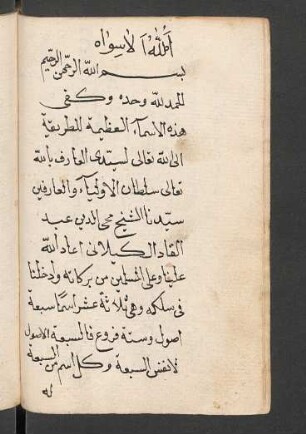 الله لا سواه
بسم الله الرحمن الرحيم
الحمد لله وحده وكفى
هذه الاسمآء العظيمة للطريقة
الى الله تعالى لسيدى العارف بالله
تعالى سلطان الاوليآء والعارفين
سيدنا الشيخ محى الدين عبد
القادر الكيلانى اعاد الله
علينا وعلى المسلمين من بركاته وادخلنا
فى سلكه وهى ثلاثة عشر اسما سبعة
اصول وستة فروع فالسبعة الاصول
للانفس السبعة وكل اسم من السبعة
له